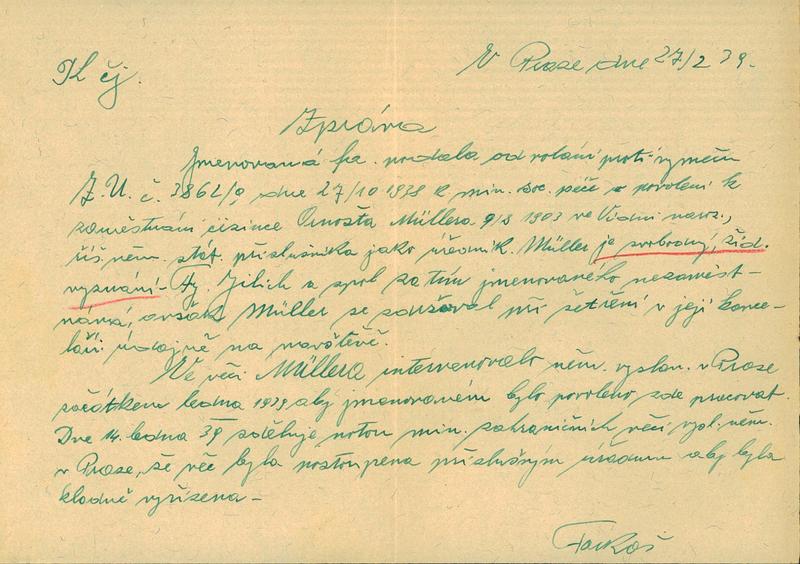 K čj.
V Praze dne 27/2 39.
Zpráva
Jmenovaná fa. podala odvolání proti výměru
Z.Ú. č. 3862/9, dne 27/10 1938 k min. soc. péče o povolení k
zaměstnání cizince Arnošta Müllera 9/8 1903 ve Vídni naroz.,
říš. něm. stát. příslušníka jako úředník. Müller je svobodný, žid.
vyznání - Fy. Jilich a spol zatím jmenovaného nezaměst-
nává, avšak Müller se zdržoval při šetření v její kance-
láři údajně na návštěvě.
Ve věci Müllera intervenovalo něm. vyslan. v Praze
začátkem ledna 1939 aby jmenovaném bylo povoleno zde pracovat.
Dne 14. ledna 39 sděluje notou min. zahraničních věcí vysl. něm.
v Praze, že věc byla postoupena příslušným úřadům aby byla
kladně vyřízena -